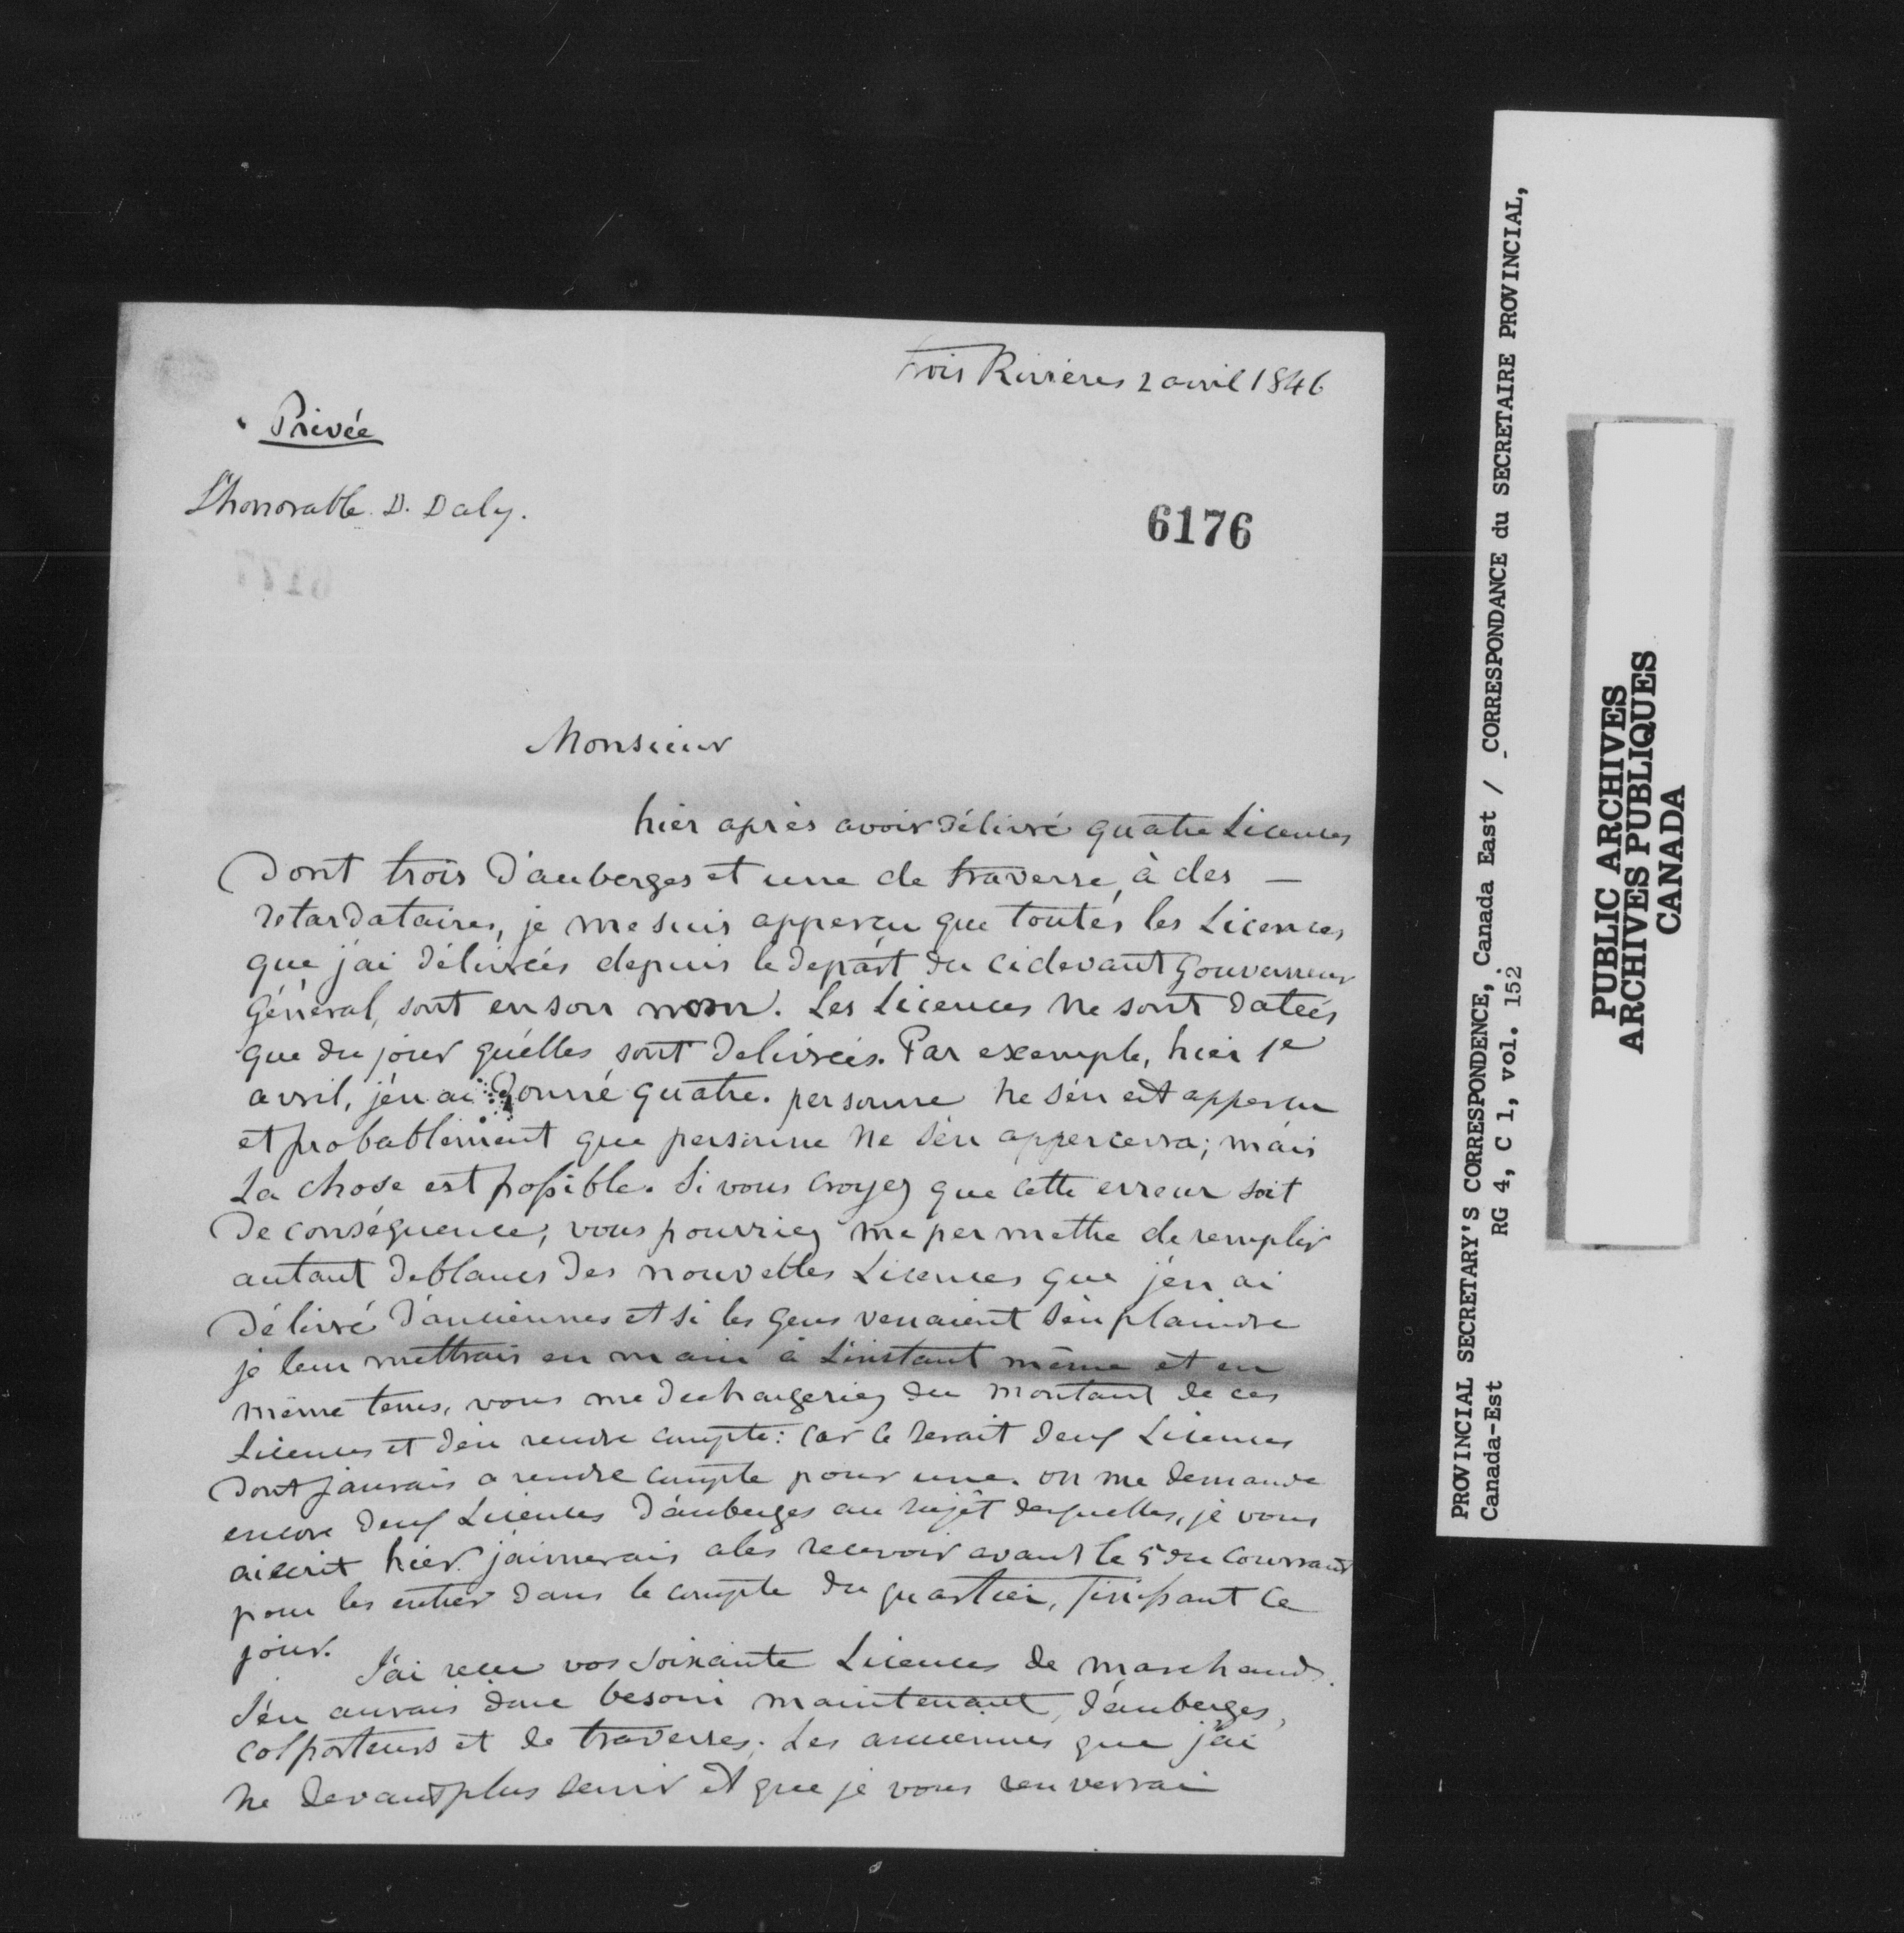 Trois Rivières 2 avril 1846
Privée
L'honorable D. Daly.
6176
Monsieur
hier après avoir délivré quatre Licences
Dont trois D'auberges et une de traverse, à des —
retardataires, je me suis apperçu que toutes les Licences
que j'ai délivrées depuis le départ du cidevant Gouverneur
Général, sont en son nom. Les Licences ne sont datées
que du jour qu'elles sont delivrées. Par exemple, hier 1e
avril, j'en ai Donné quatre. personne ne s'en est apperçu
et probablement que personne ne s'en appercevra; mais
La chose est possible. Si vous croyez que cette erreur soit
De conséquence, vous pourriez me permettre de remplir
autant de blancs Des nouvelles Licences que j'en ai
Délivré D'anciennes et si les gens venaient s'en plaindre
je leur mettrais en main à L'instant même et en
même tems, vous me dechargeriez du montant de ces
Licences et d'en rendre compte: car ce serait deux Licences
Dont j'aurais a rendre compte pour une. on me demande
encore deux Licences D'auberges au sujet desquelles, je vous
ai ecrit hier. j'aimerais a les recevoir avant le 5 du courrant
pour les entrer dans le compte du quartier, finissant ce
jour.
J'ai reçu vos soixante Licences de marchands.
J'en aurais donc besoin maintenant, d'auberges,
colporteurs et de traverses. Les anciennes que j'ai
ne devant plus servir et que je vous renverrai
PROVINCIAL SECRETARY'S CORRESPONDENCE, Canada East / CORRESPONDANCE du SECRETAIRE PROVINCIAL,
Canada-Est RG 4, C 1, vol. 152
PUBLIC ARCHIVES
ARCHIVES PUBLIQUES
CANADA